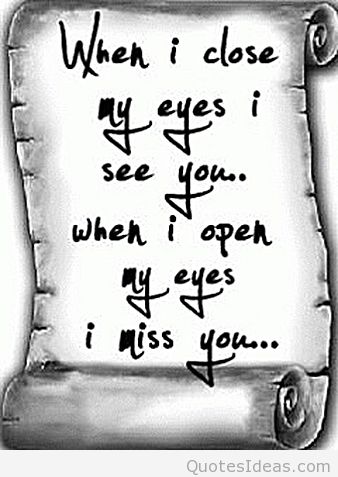 When i close
my eyes i
see you..
when i open
my eyes
i miss you...
QuotesIdeas.com